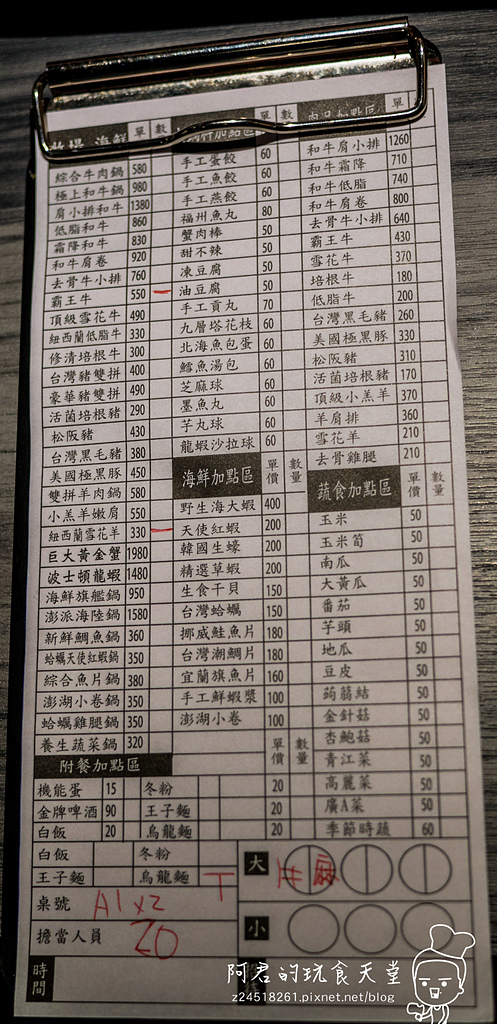 牧場 海鮮 單 數
綜合牛肉鍋 580
極上和牛鍋 980
肩小排和牛 1380
低脂和牛 860
霜降和牛 830
和牛肩卷 920
去骨牛小排 760
霸王牛 550 —
頂級雪花牛 490
紐西蘭低脂牛 330
修清培根牛 300
台灣豬雙拼 400
豪華豬雙拼 490
活菌培根豬 290
松阪豬 430
台灣黑毛豬 380
美國極黑豚 450
雙拼羊肉鍋 580
小羔羊嫩肩 550
紐西蘭雪花羊 330 —
巨大黃金蟹 1980
波士頓龍蝦 1480
海鮮旗艦鍋 950
澎派海陸鍋 1580
新鮮鯛魚鍋 360
蛤蠣天使紅蝦鍋 350
綜合魚片鍋 380
澎湖小卷鍋 350
蛤蠣雞腿鍋 350
養生蔬菜鍋 320
加點區 單 數
手工蛋餃 60
手工魚餃 60
手工燕餃 60
福州魚丸 80
蟹肉棒 50
甜不辣 50
凍豆腐 50
油豆腐 50
手工貢丸 70
九層塔花枝 60
北海魚包蛋 60
鱈魚湯包 60
芝麻球 60
墨魚丸 60
芋丸球 60
龍蝦沙拉球 60
海鮮加點區 單價 數量
野生海大蝦 400
天使紅蝦 200
韓國生蠔 200
精選草蝦 200
生食干貝 150
台灣蛤蠣 150
挪威鮭魚片 180
台灣潮鯛片 180
宜蘭旗魚片 160
手工鮮蝦漿 100
澎湖小卷 100
肉品加點區 單
和牛肩小排 1260
和牛霜降 710
和牛低脂 740
和牛肩卷 800
去骨牛小排 640
霸王牛 430
雪花牛 370
培根牛 180
低脂牛 200
台灣黑毛豬 260
美國極黑豚 330
松阪豬 310
活菌培根豬 170
頂級小羔羊 370
羊肩排 360
雪花羊 210
去骨雞腿 210
蔬食加點區 單價 數量
玉米 50
玉米筍 50
南瓜 50
大黃瓜 50
番茄 50
芋頭 50
地瓜 50
豆皮 50
蒟蒻結 50
金針菇 50
杏鮑菇 50
青江菜 50
高麗菜 50
廣A菜 50
季節時蔬 60
附餐加點區 單價 數量
機能蛋 15 冬粉 20
金牌啤酒 90 王子麵 20
白飯 20 烏龍麵 20
白飯 冬粉
王子麵 烏龍麵 T
桌號 A1x2
擔當人員 20
時間
大 麻
小
阿君的玩食天堂
z24518261.pixnet.net/blog